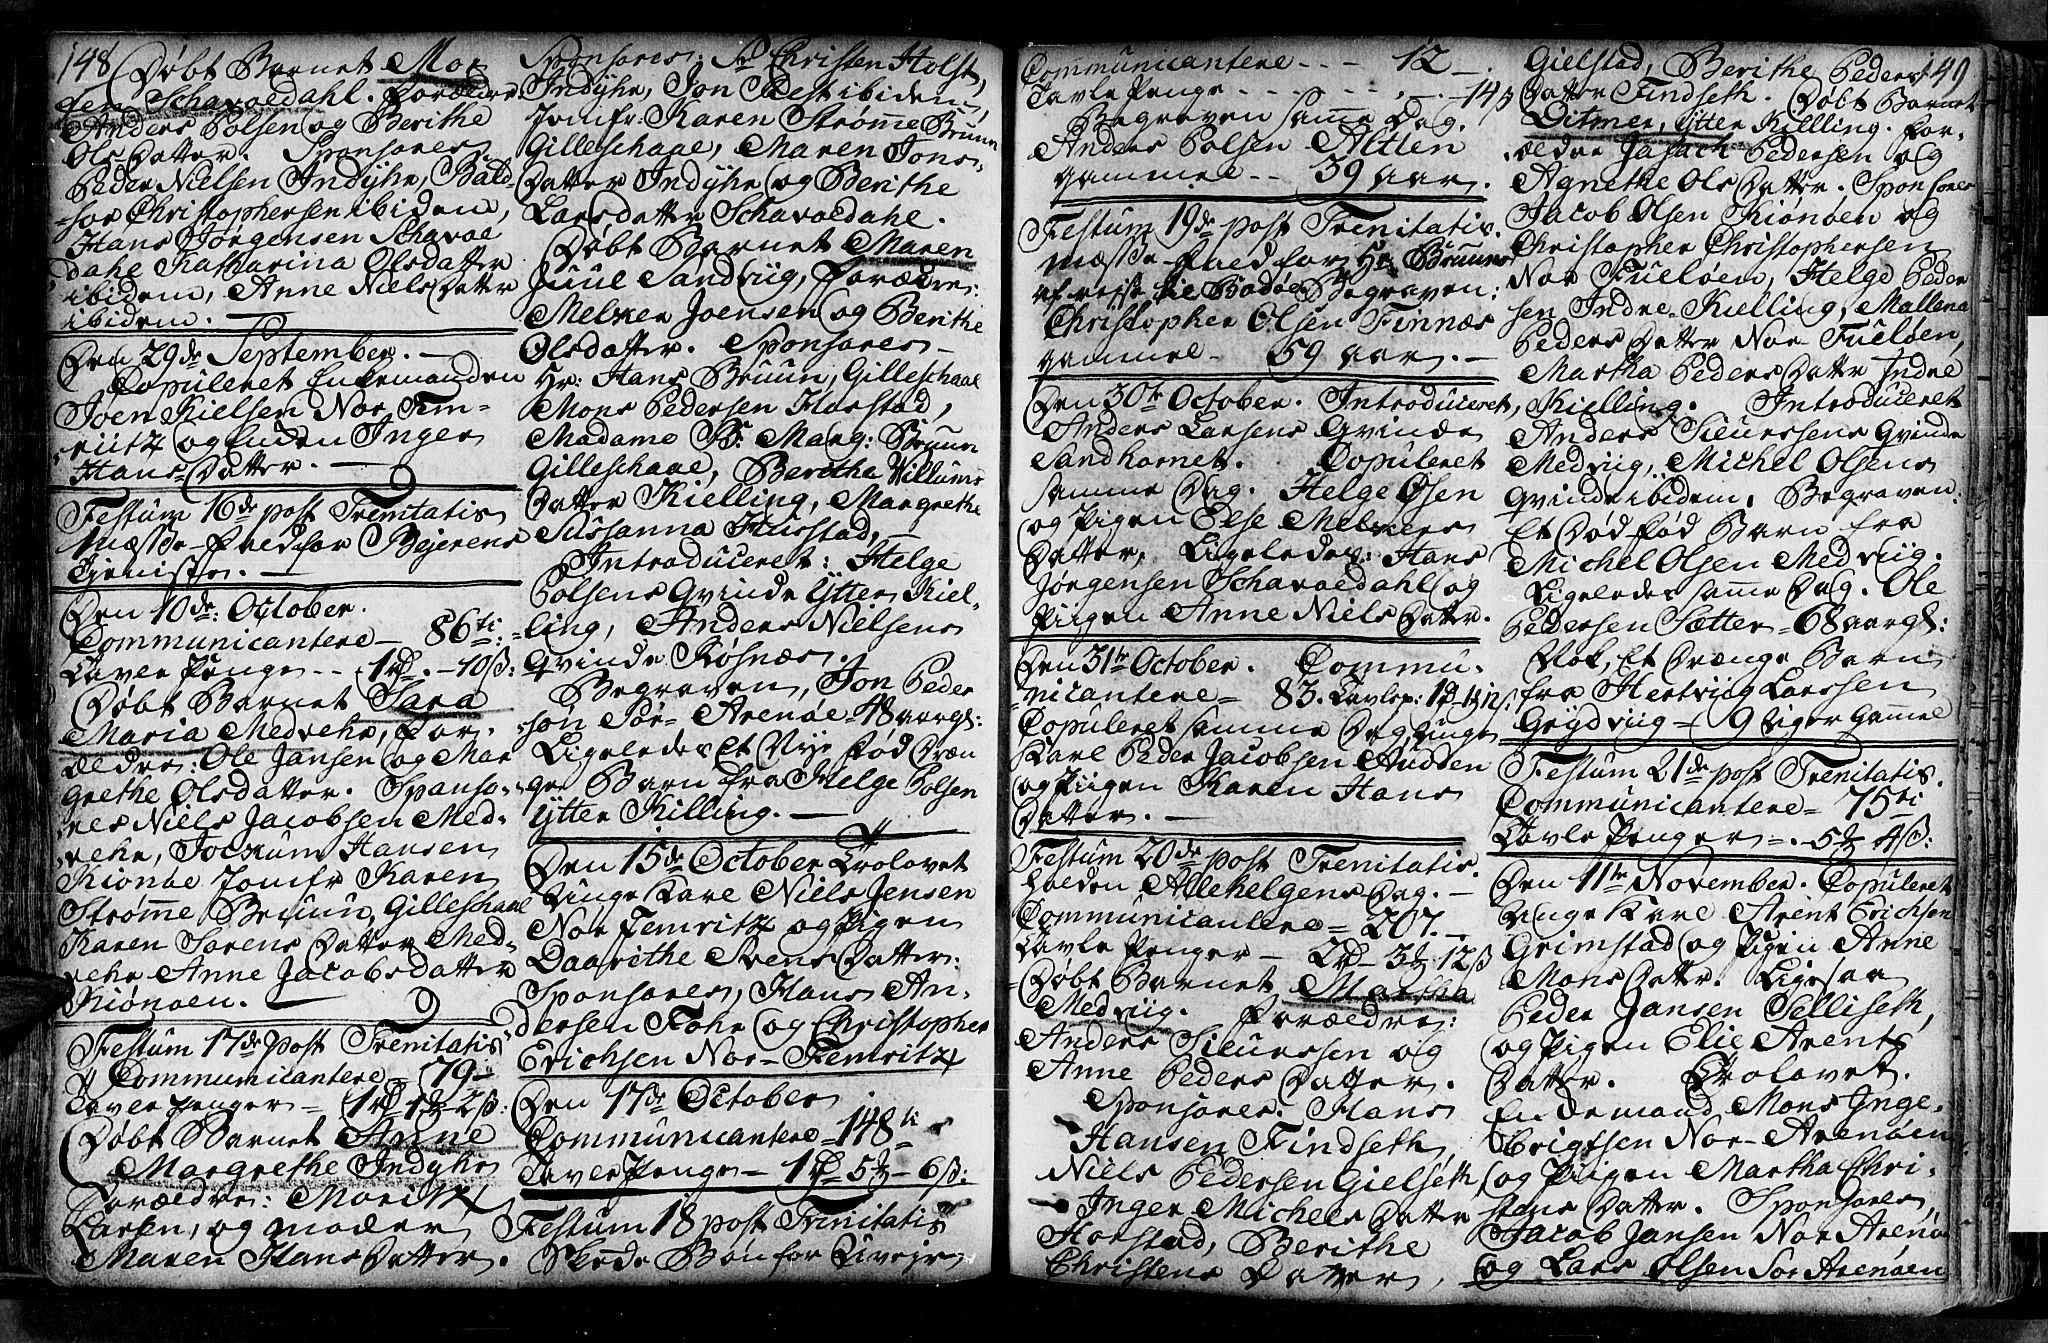 148
Døbt Barnet Mor
ten Schavoldahl. Forældre:
Anders Polsen og Berithe
Ols Datter. Sponsores
Peder Nielsen Indÿhr, Bald-
sor Christophersen ibidem,
Hans Jørgensen Schavol
dahl Katharina Olsdatter
ibidem, Anne Niels Datter
ibidem.
Den 29de September.
Copuleret Enkemanden
Joen Kielsen Nor Fem-
riitz og Enken Inger
Hans Datter.
Festum 16de post Trenitatis
Mæsse-Fred for Bejerens
Tjeniste.
Den 10de: October.
Communicantere - 86ti:
Tavle Penge - 1rd. - 10ß:
Døbt Barnet Sara
Maria Medvehr, For-
ældre: Ole Jansen og Mar
Grethe Olsdatter. Sponso-
res Niels Jacobsen Med-
vehr, Jockum Hansen
Kionøe Jomfr Karen
Strømme Bruun, Gilleschaal
Karen Sørens Datter Med-
vehr Anne Jacobsdatter
Kiønøen.
Festum 17de post Trenitatis
Communicantere - 79
Tavle Penger - 1rd 1 2ß:
Døbt Barnet Anne
Margrethe Indÿhr
Forældre: Moritz
Larsen, og moder
Maren Hans Datter.
Sponsores: Sr Christen Holst,
Indÿhr, Jon Pest ibidem,
Jomfr: Karen Strømme Bruun
Gilleschaal, Maren Jons-
Datter Indÿhr og Berithe
Larsdatter Schavoldahl.
Døbt Barnet Maren
Juul Sandviig, Forældre:
Melker Joensen og Berithe
Olsdatter. Sponsores
Hr: Hans Bruun, Gilleschaal
Mons Pedersen Horstad,
Madame Marg: Bruun
Gilleschaal, Beritha Villums
Datter Kielling, Margrethe
Susanna Horstad,
Introduceret: Helge
Polsens Qvinde Ÿtter Kiel-
ling, Anders Nielsens
Qvinde Kosnæs.
Begraven, Jon Peder
søn Sør-Arenøe 48 aar gl:
Ligeledes Et Nye Fød Dræn
ge Barn fra Helge Polsen
Ÿtter Killing.
Den 15de October Trolovet
Unge Karl Niels Jensen
Nor Femritz og Pigen
Daarithe Svens Datter:
Sponsores, Hans An-
dersen Fohr og Christopher
Erichsen Nor-Femritz
Den 17de October
Communicantere - 148ti
Tavle Penge - 1rd 5 - 6ß:
Festum 18 post Trinitatis
Skeede Bøn for Livøje
Communicantere - 12
Tavle Penge - 14ß
Begraven samme Dag.
Anders Polsen Altlen
gammel - 39 aar.
Festum 19de post Trenitatis.
Mæsse-Fred for Hr Bruuns
afrejse til Bodøe Begraven:
Christopher Olsen Finnæs
gammel - 59 aar.
Den 30te October. Introduceret,
Anders Larsens Qvinde
Sandhornet. Copuleret
samme Dag. Helge Olsen
og Pigen Else Melkers
Datter, Ligeledes: Hans
Jørgensen Schavoldahl og
Piigen Anne Niels Datter.
Den 31te October. Commu-
nicantere - 83. Tavlep: 1 12ß.
Copuleret samme Dag Unge
Karl Peder Jacobsen Hudden
og Piigen Karen Hans
Datter.
Festum 20de post Trenitatis.
holden Allehelgens Dag.
Communicantere - 207.
Tavle Penger - 2rd 3 12ß
Døbt Barnet Martha
Medviig. Forældre:
Anders Siurssen og
Anne Peders Datter.
Sponsores. Hans
Hansen Findseth,
Niels Pedersen Gielseth,
Inger Michels Datter
Horstad, Berithe
Christens Datter,
149
Gielstad, Berithe Peders
Datter Findseth. Døbt Barnet
Ditmer, Ÿtter Kielling. For-
ældre Jasach Pedersen og
Agnethe Ols Datter. Sponsores
Jacob Olsen Kiønøen og
Christopher Christophersen
Nor Fueløen, Helge Peder
sen Indre-Kielling, Mallena
Peders Datter Nor-Fueløen,
Martha Peders Datter Indre
Kielling. Introduceret
Anders Siurssens Qvinde
Medviig, Michel Olsens
Qvinde ibidem. Begraven:
Et Død Fød Barn fra
Michel Olsen Medviig.
Ligeledes samme Dag. Ole
Pedersen Sætter - 68 aar gl:
Nok, Et Drænge Barn
fra Hertviig Larssen
Grÿdviig - 9 Uger Gammel
Festum 21de post Trenitatis.
Communicantere - 75ti
Tavle Penger - 5 4ß:
Den 11te November. Copuleret
Unge Karl Arent Erichsen
Grimstad og Pigen Anne
Mons Datter. Ligesaa
Peder Jansen Selliseth,
og Pigen Elie Arents
Datter. Trolovet.
Enkemand Mons Inge-
brigtsen Nor-Arenøen
og Piigen Martha Chri-
stens Datter. Sponsores,
Jacob Jansen Nor Arenø
og Lars Olsen Sør Arenøen